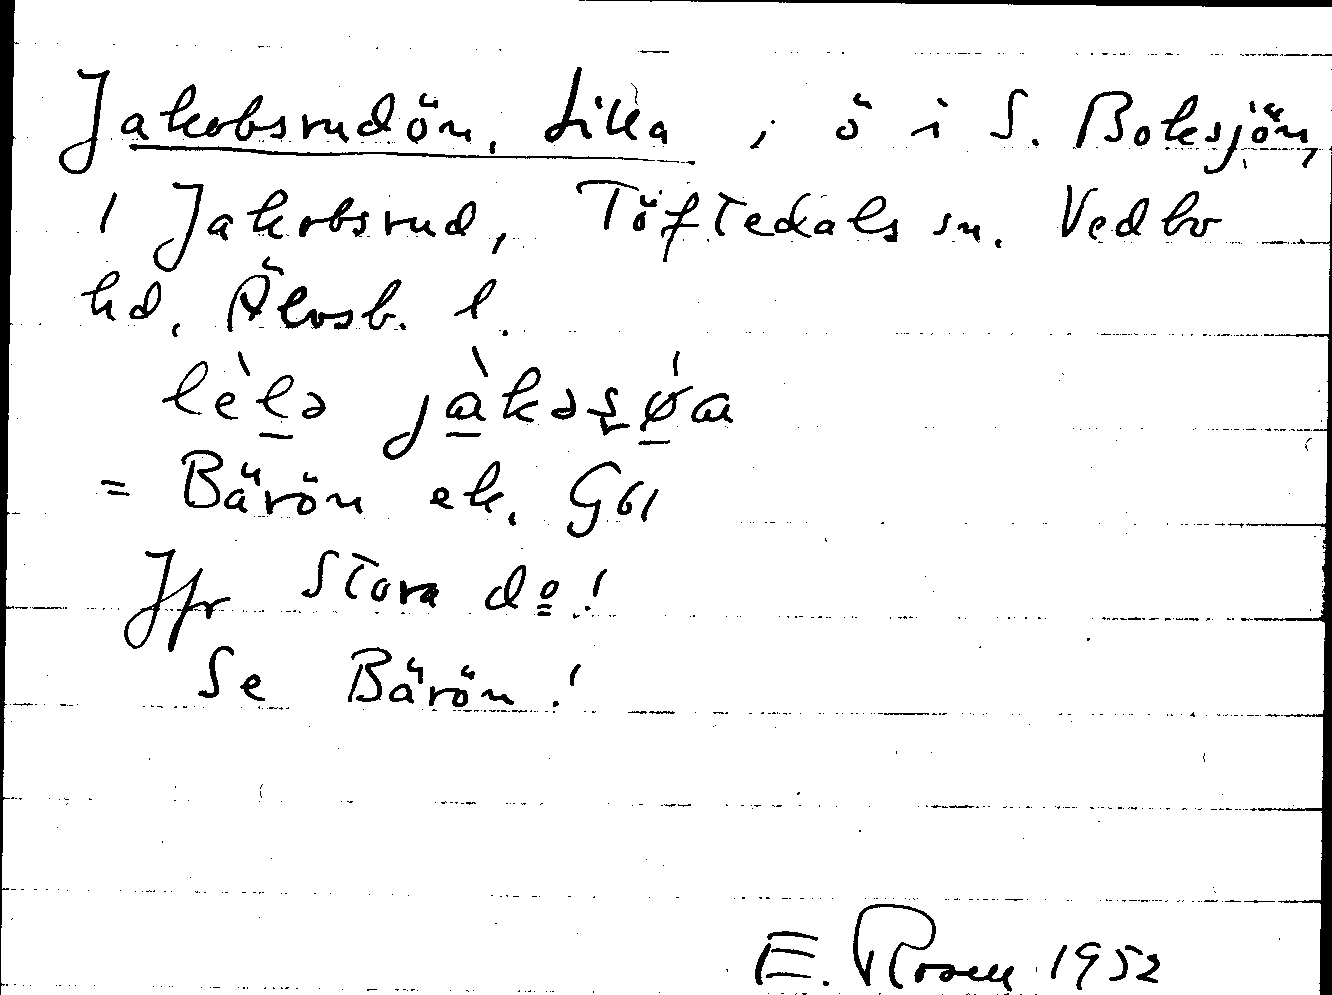 Jakobsrudön, Lilla, ö i S. Boksjön,
1 Jakobsrud, Töftedals sn. Vedbo
hd, Älvsb. l.
lèlə jàkəsǿa
= Bärön ek. G61
Jfr Stora do!
Se Bärön!
E. Rosell 1952